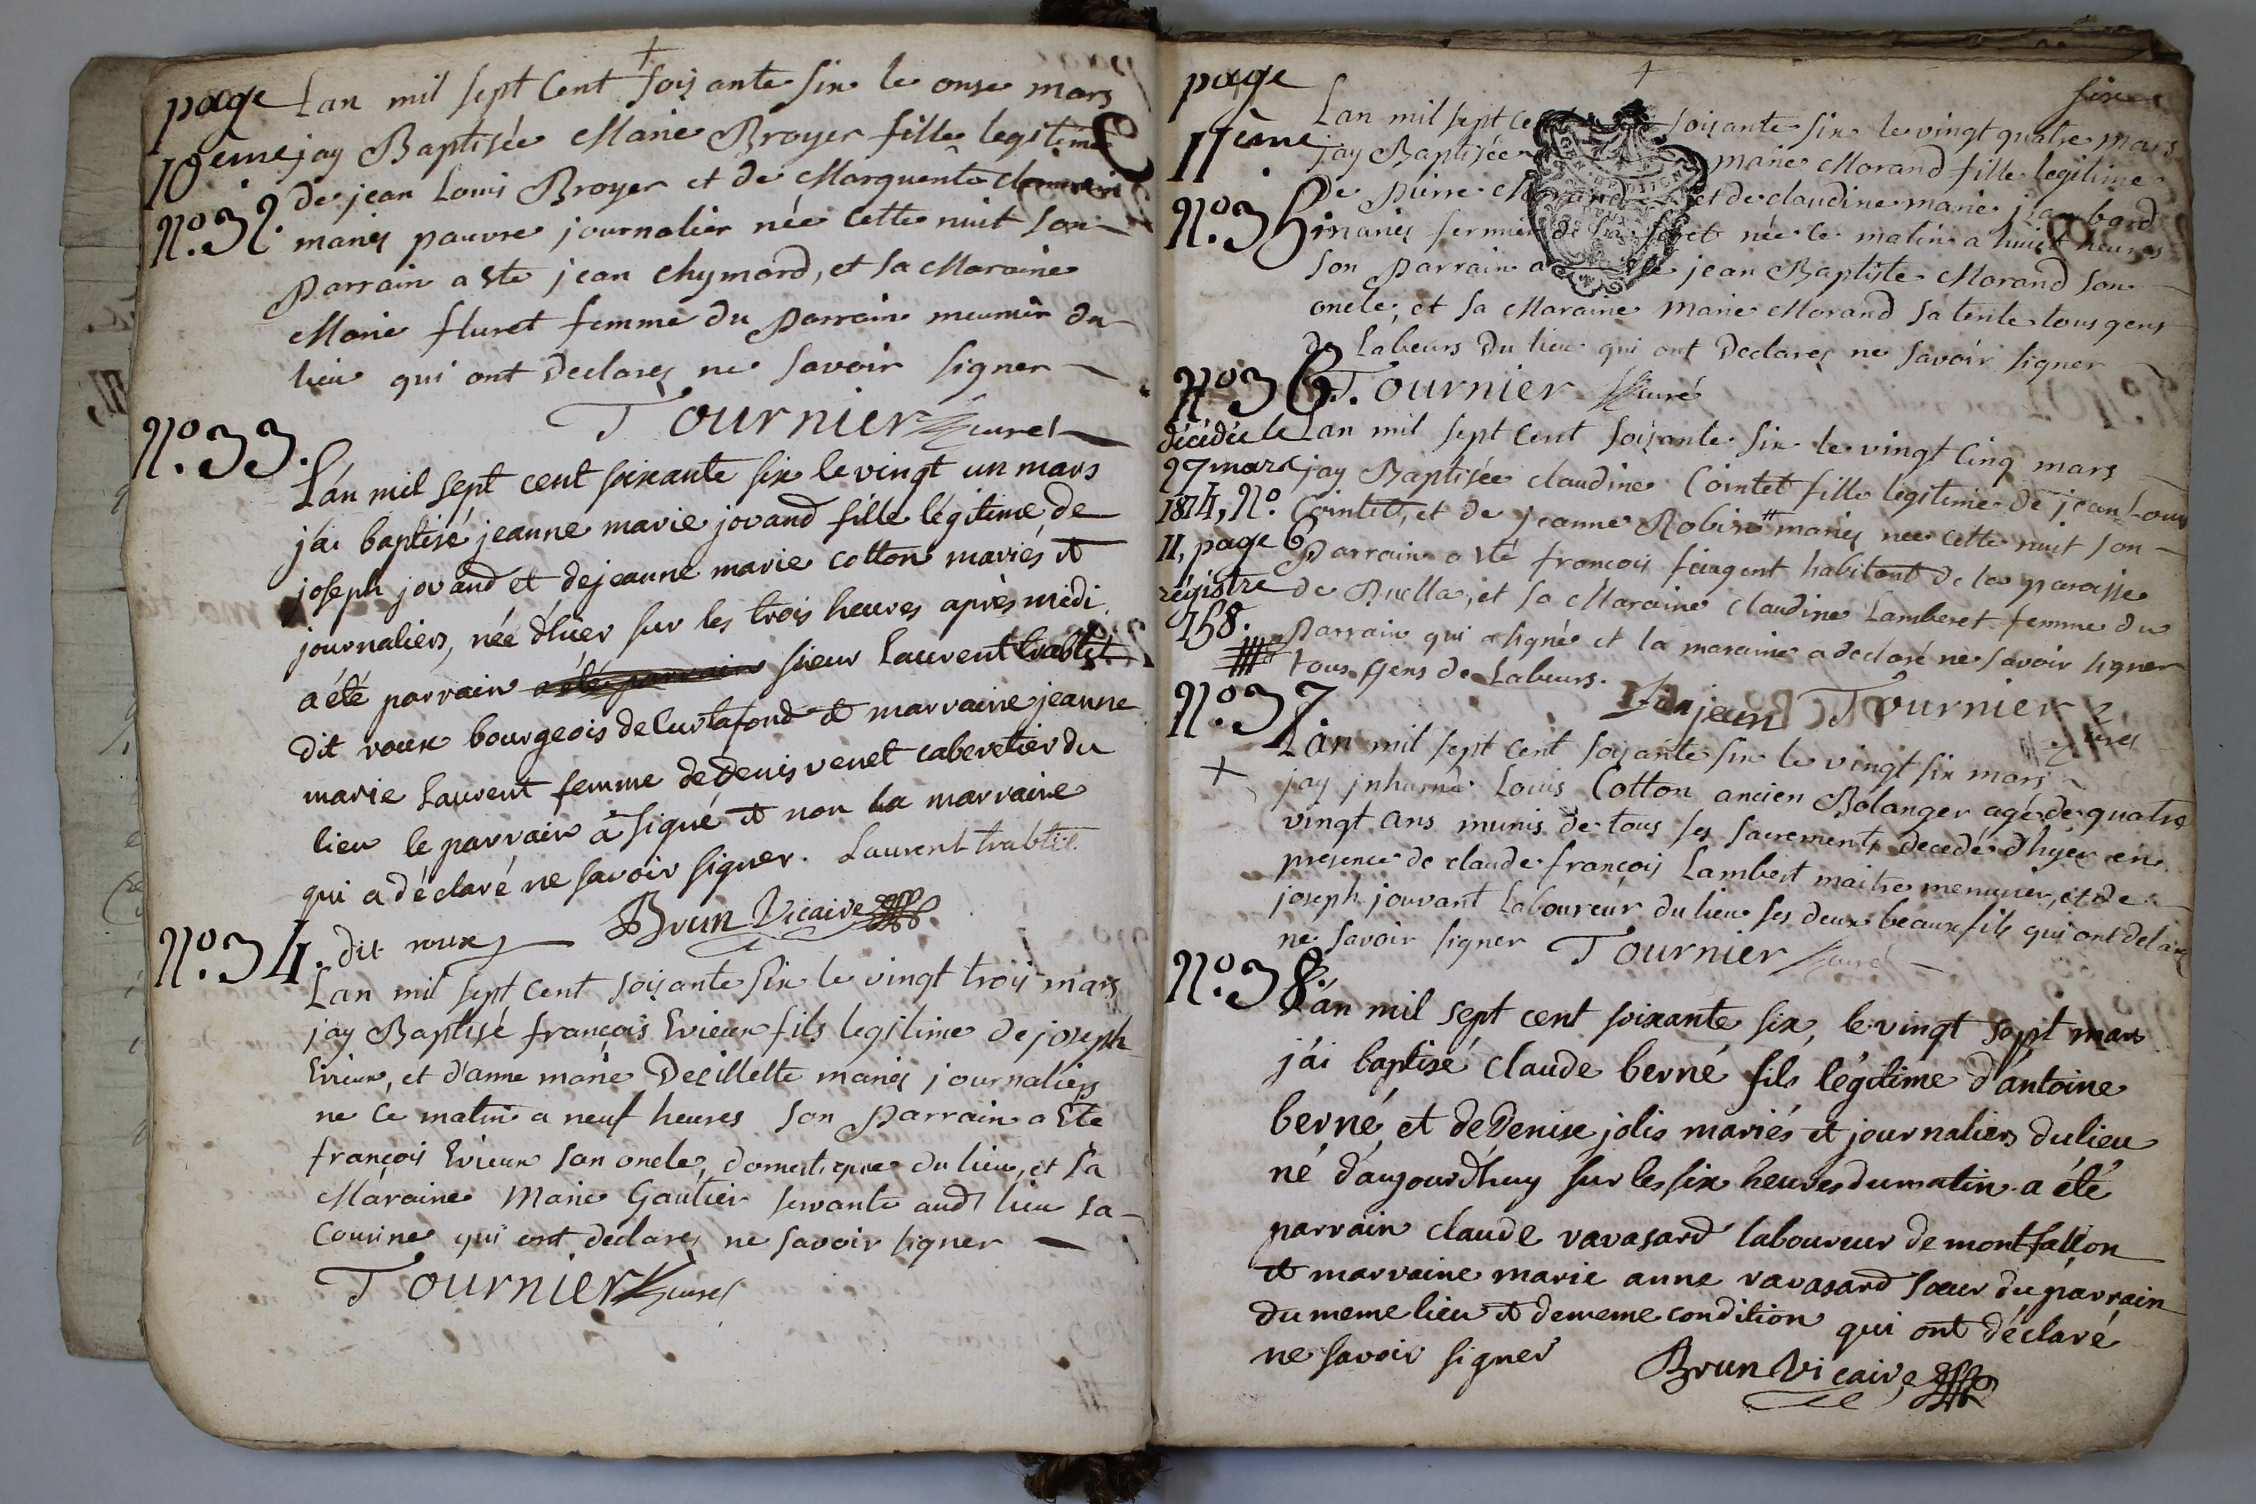 page
10ème
N.º 32.
Lan mil sept Cent soisante six le onse mars
jay Baptisée Marie Broyer fille legitime
de jean Louis Broyer et de Marguerite
mariés pauvre journalier née cette nuit son
Parrain a ete jean chymard, et sa Maraine
Marie fluret femme du Parrain meunier du
lieu qui ont Declarés ne savoir signer
Tournier curé
N.º 33.
Lán mil sept cent soixante six le vingt un mars
j'ai baptisé jeanne marie jovand fille légitime de
joseph jovand et de jeanne marie cotton mariés et
journaliers, née d'hier sur les trois heures après midi,
a été parrain a été parrain sieur Laurent trablet
dit roux bourgeois de Curtafond et marraine jeanne
marie Laurent femme de Denis venet cabaretier du
lieu le parrain a signé et non la marraine
qui a déclaré ne savoir signer. Laurent trablet
dit roux Brun Vicaire
N.º 34.
Lan mil sept cent soisante six le vingt trois mars
jay Baptisé françois Evieux fils legitime de joseph
Evieux, et d'anne marie Decillette mariés journaliers
ne ce matin a neuf heures son Parrain a ete
françois Evieux son oncle, domestique du lieu, et sa
Maraine Marie Gautier servante aud lieu sa
Cousine qui ont declarés ne savoir signer
Tournier curé
page
11ème
six
N.º 35
Lan mil sept ce soisante six le vingt quatre mars
jay Baptisée marie Morand fille legitime
De Pierre Morand et de claudine marie
mariés fermier de la foret née ce matin a huict heures
son Parrain a ete jean Baptiste Morand son
oncle, et sa Maraine Marie Morand sa tente tous gens
De Labeurs Du lieu qui ont Declarés ne savoir signer
Tournier curé
N.º 36.
décédée le
27 mars
1814, N.º
11, page 6
régistre
758.
Lan mil sept cent soisante six le vingt cinq mars
jay Baptisée claudine Cointet fille legitime de jean Louis
Cointet, et de jeanne Robin # mariés nee cette nuit son
Parrain a eté françois finjent habitant de la paroisse
de Ruella, et sa Maraine claudine Lamberet femme du
Parrain qui a signé et la maraine a declaré ne savoir signer
# tous gens de Labeurs.
finjean Tournier curé
N.º 37
+
Lan mil sept cent soisante six le vingt six mars
jay inhumé Louis Cotton ancien Bolanger agé de quatre
vingt ans munis de tous ses sacrements decedé d'hyer en
presence de claude françois Lambert maitre menusier, et de
joseph jouvant Laboureur du lieu ses deux beaux fils qui ont declaré
ne savoir signer Tournier curé
N.º 38.
L'án mil sept cent soixante six, le vingt sept mars
j'ái baptisé claude berné fils légitime d'ántoine
berné, et de Denise jolis mariés et journaliers du lieu
né d'áujourd'huy sur les six heures du matin a été
parrain claude vavasard laboureur de montfallcon
et marraine marie anne vavasard sœur du parrain
du meme lieu et de meme condition qui ont déclaré
ne savoir signer Brun Vicaire